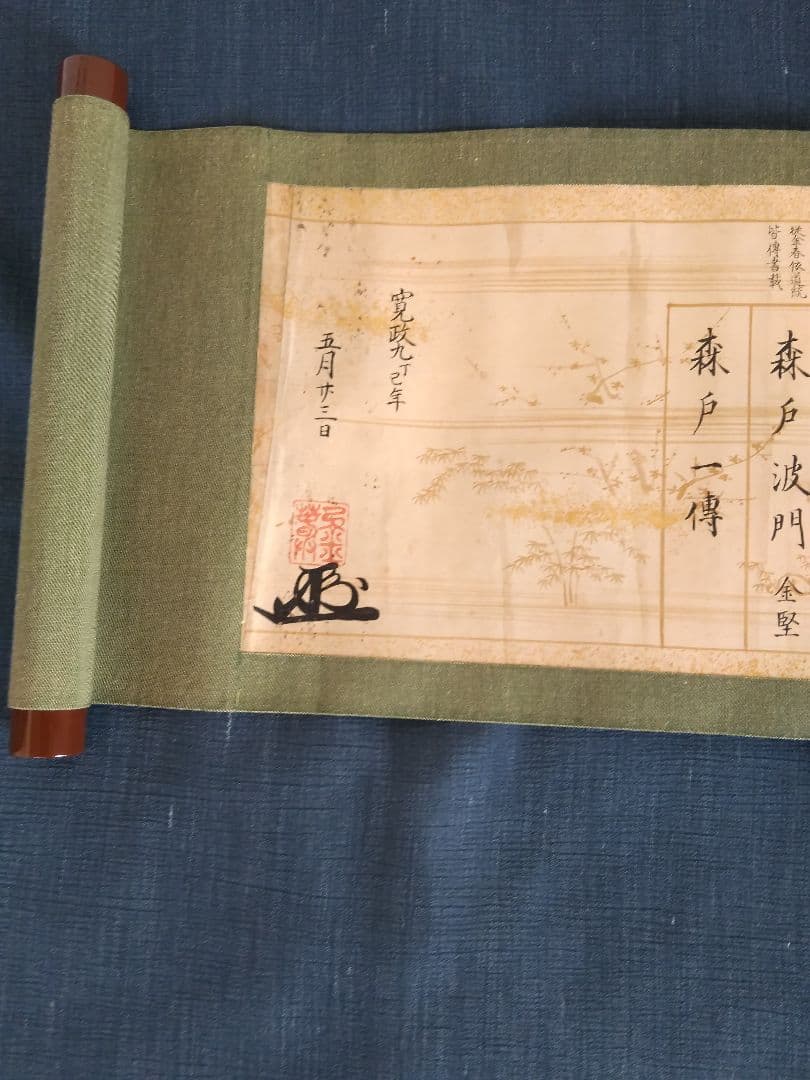 従金春依道統
皆傳書載
森戸波門 金堅
森戸一傳
寛政九丁巳年
五月廿三日